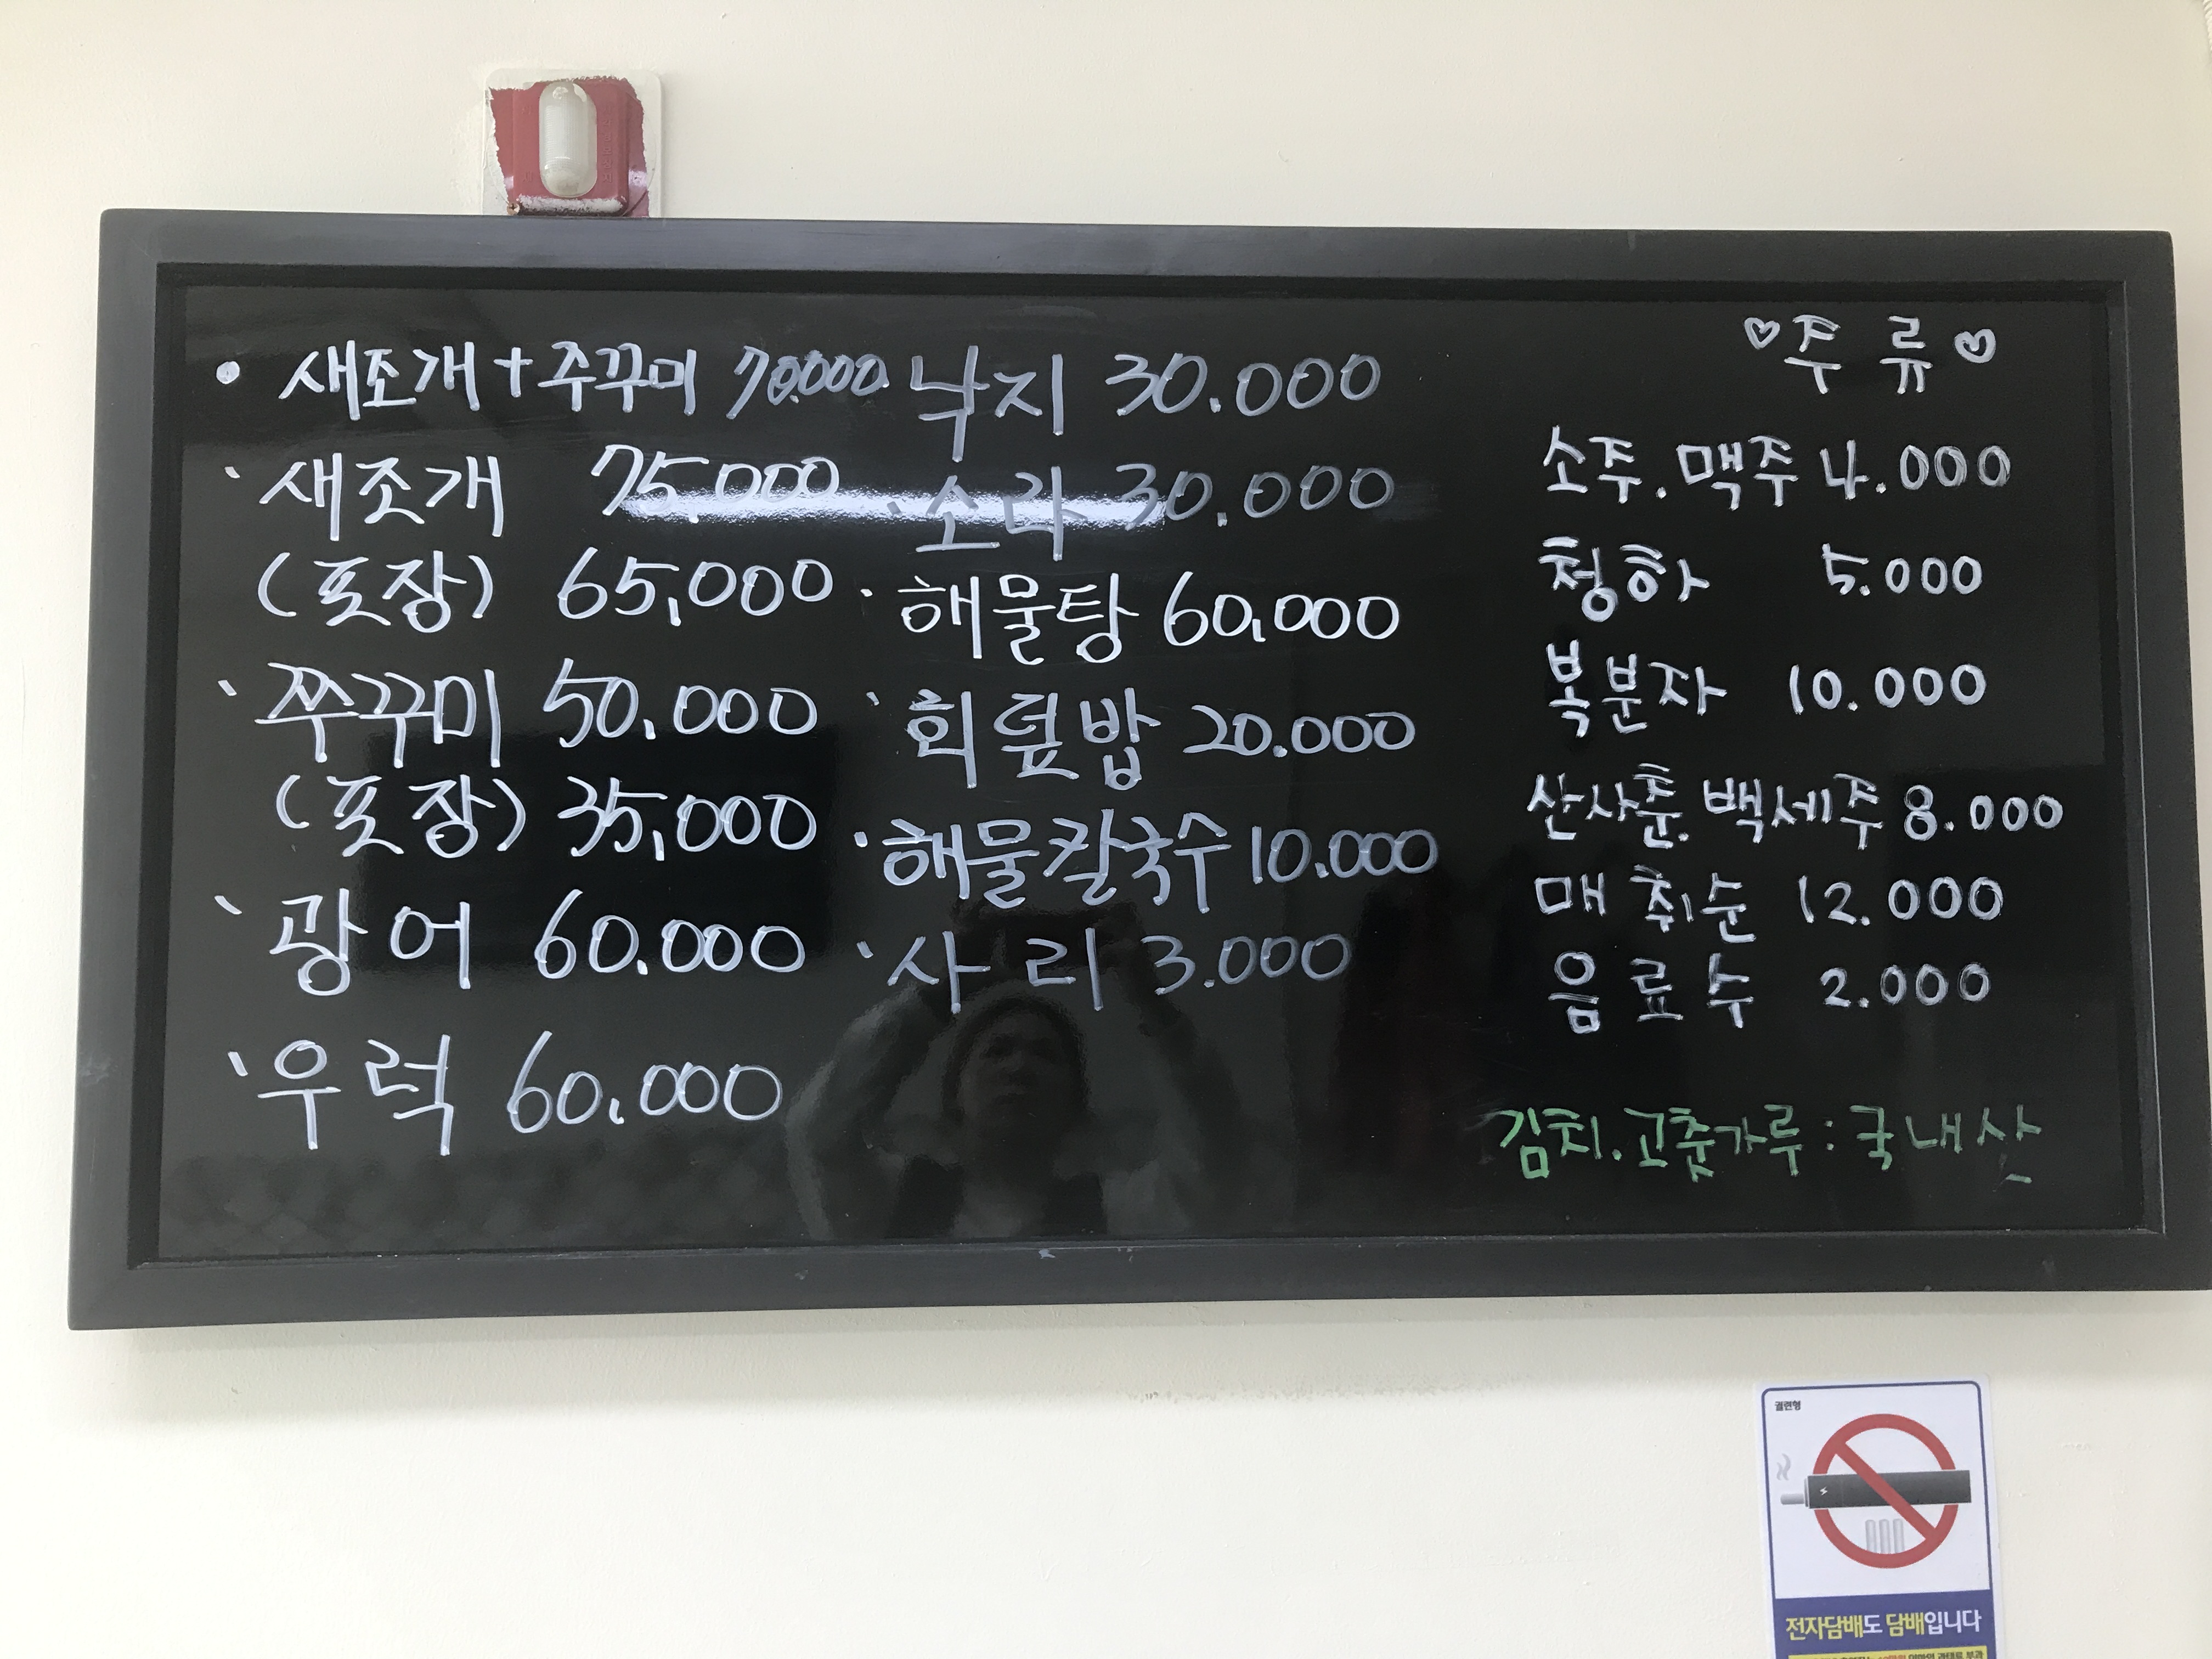 • 새조개+주꾸미 70.000
` 새조개 75,000
(포장) 65,000
` 쭈꾸미 50.000
(포장) 35,000
` 광어 60.000
` 우럭 60.000
낙지 30.000
` 소라 30.000
· 해물탕 60.000
` 회덮밥 20.000
` 해물칼국수 10.000
` 사리 3.000
♡주 류♡
소주.맥주 4.000
청하 5.000
복분자 10.000
산사춘.백세주 8.000
매취순 12.000
음료수 2.000
김치.고춧가루:국내산
궐련형
전자담배도 담배입니다